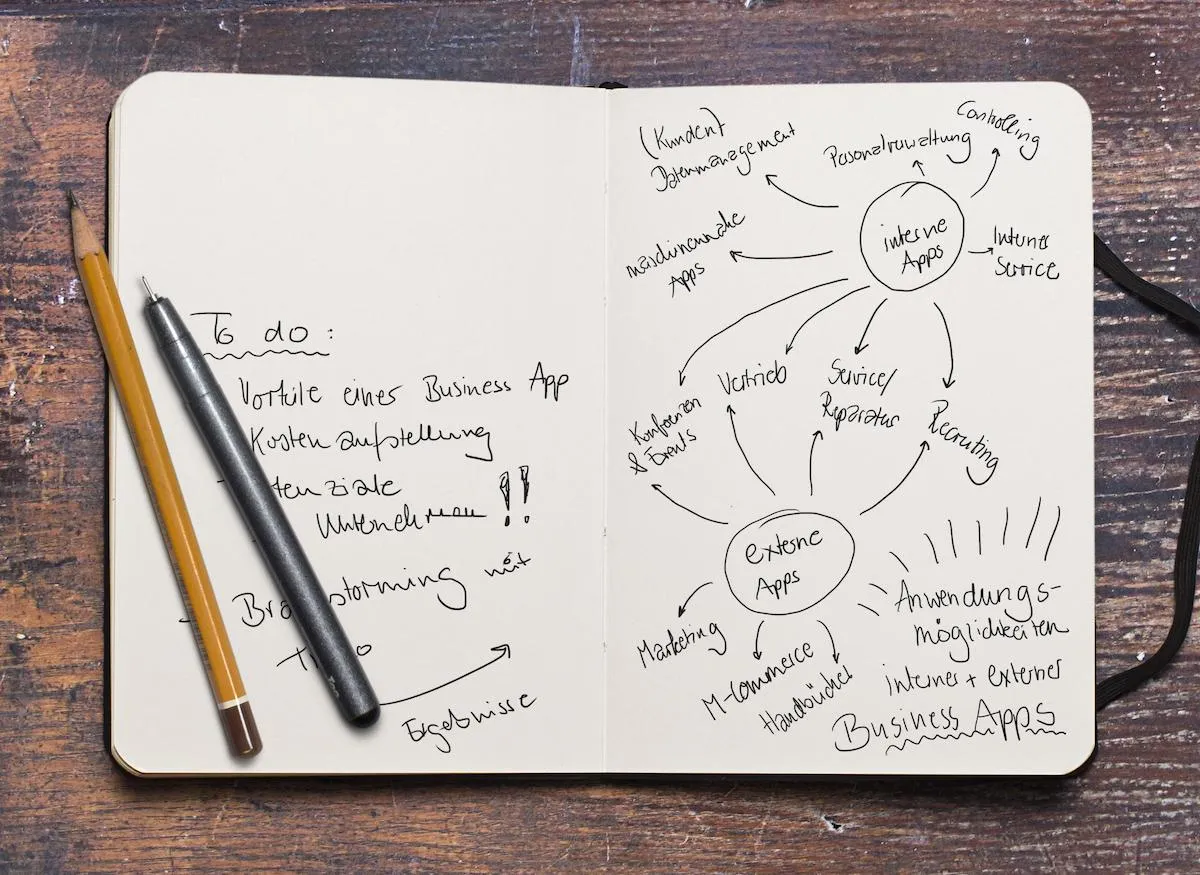 To do:
Vorteile einer Business App
Kostenaufstellung
tenziale
Unternehmen !!
Brainstorming mit
Ergebnisse
(Kunden)
Datenmanagement
Personalverwaltung
Controlling
maschinennahe
Apps
interne
Apps
Interner
Service
Konferenzen
& Events
Vertrieb
Service/
Reparatur
Recruiting
externe
Apps
Marketing
M-Commerce
Handbücher
Anwendungs-
möglichkeiten
interner + externer
Business Apps